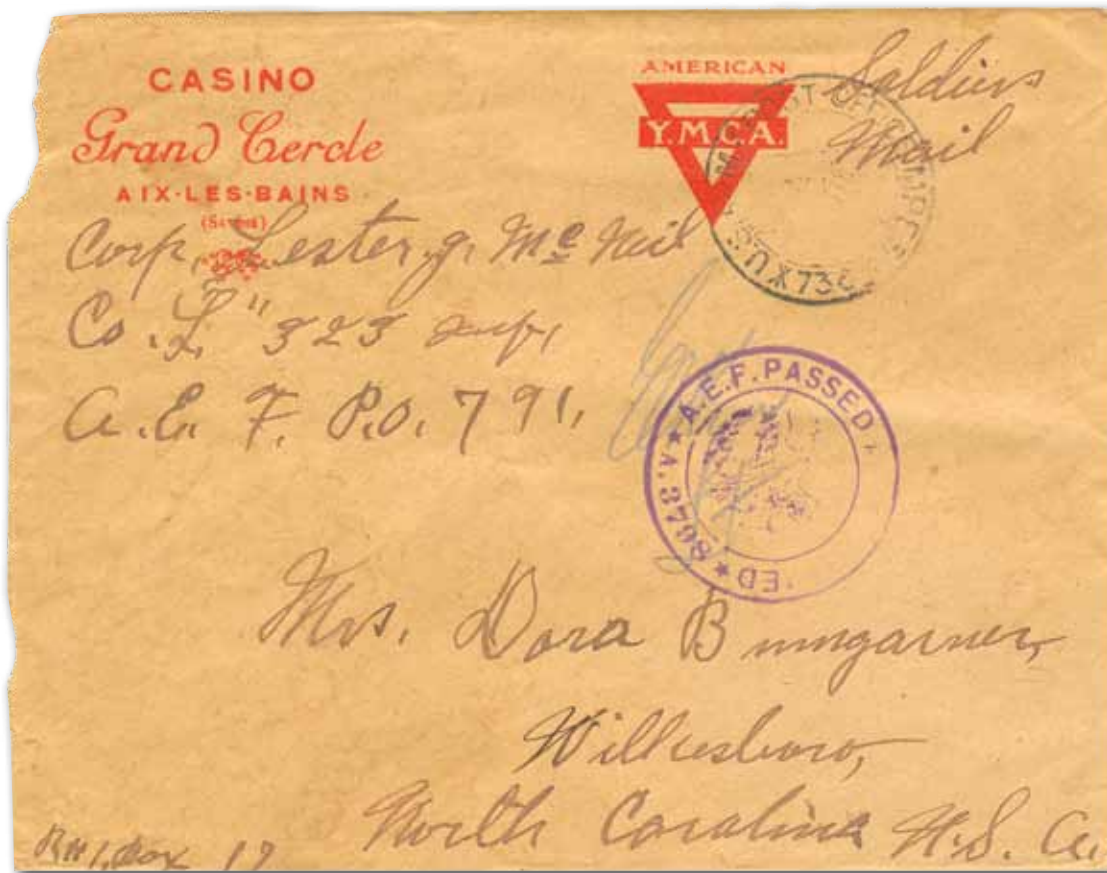 CASINO
Grand Cercle
AIX-LES-BAINS
AMERICAN
Y.M.C.A.
Soldiers
Mail
Corp. Lester g. McNeil
Co. "L" 323 Inf,
A. E. F. P.O. 791,
U.S. X 734
A.E.F. PASSED
ED ★ 8678.V ★
Mrs. Dora Bumgarner,
Wilkesboro,
North Carolina U.S. A.
R#1, Box 17